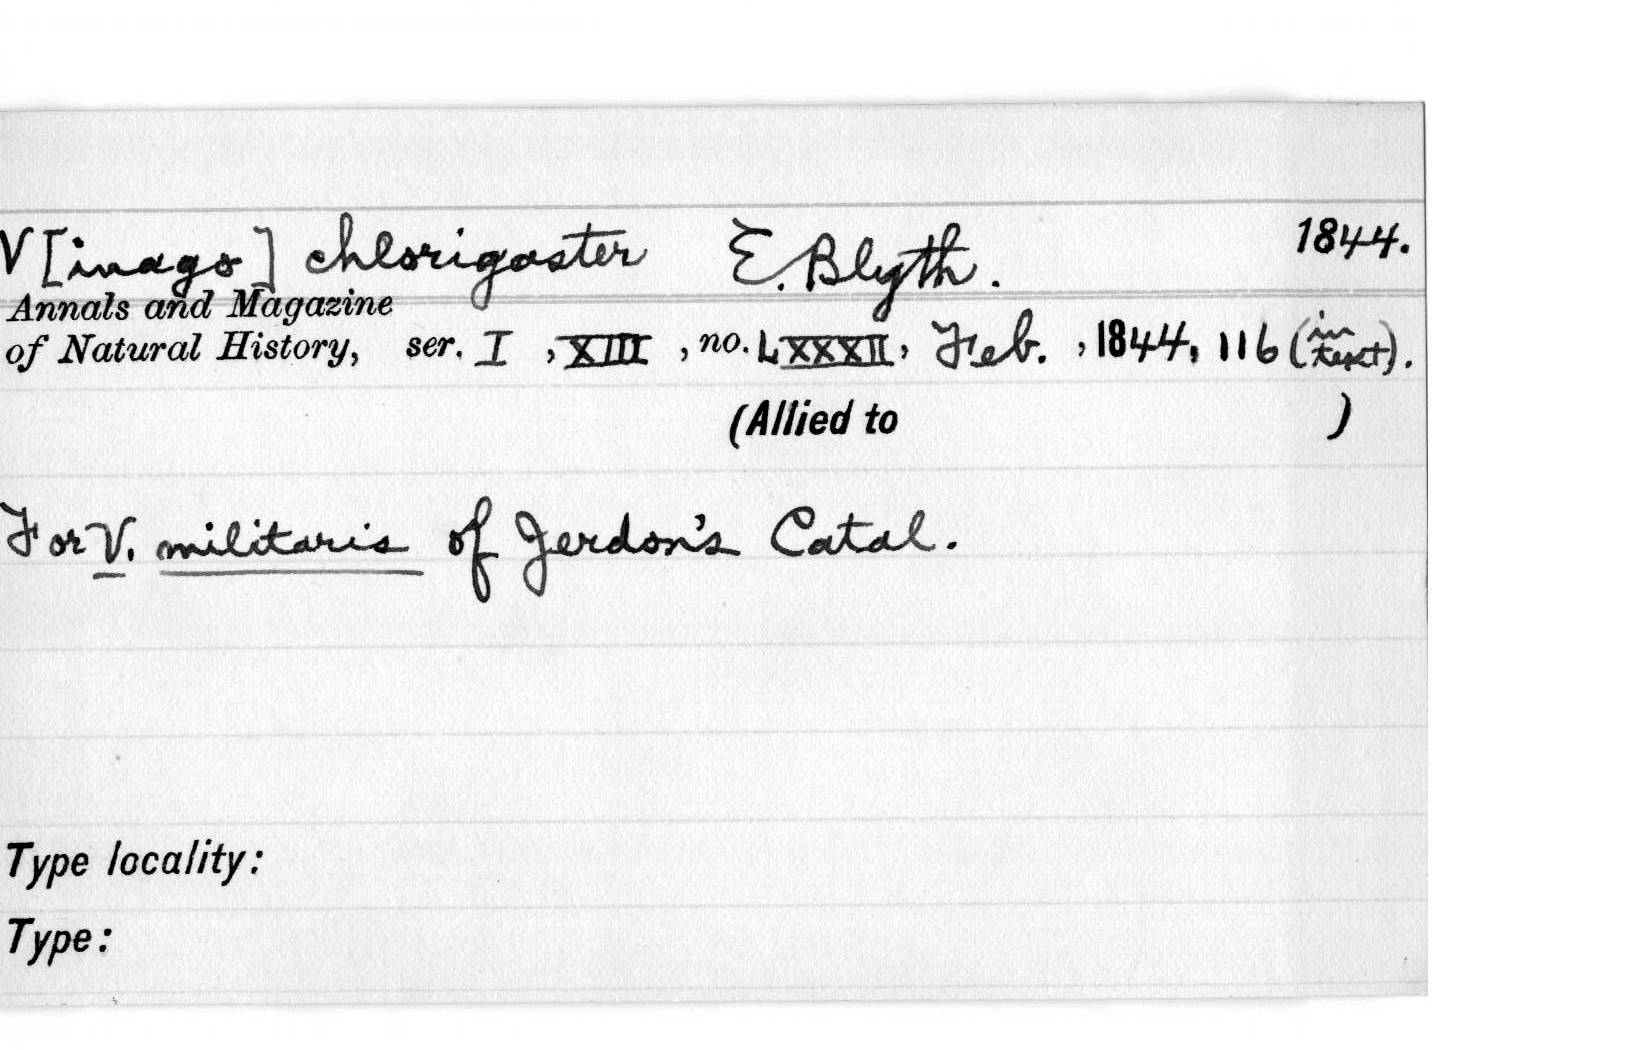 V[inago] chlorigaster E. Blyth. 1844.
Annals and Magazine
of Natural History, ser. I , XIII , no. LXXXII, Feb. , 1844, 116 (in text).
(Allied to )
For V. militaris of Jerdon's Catal.
Type locality:
Type: